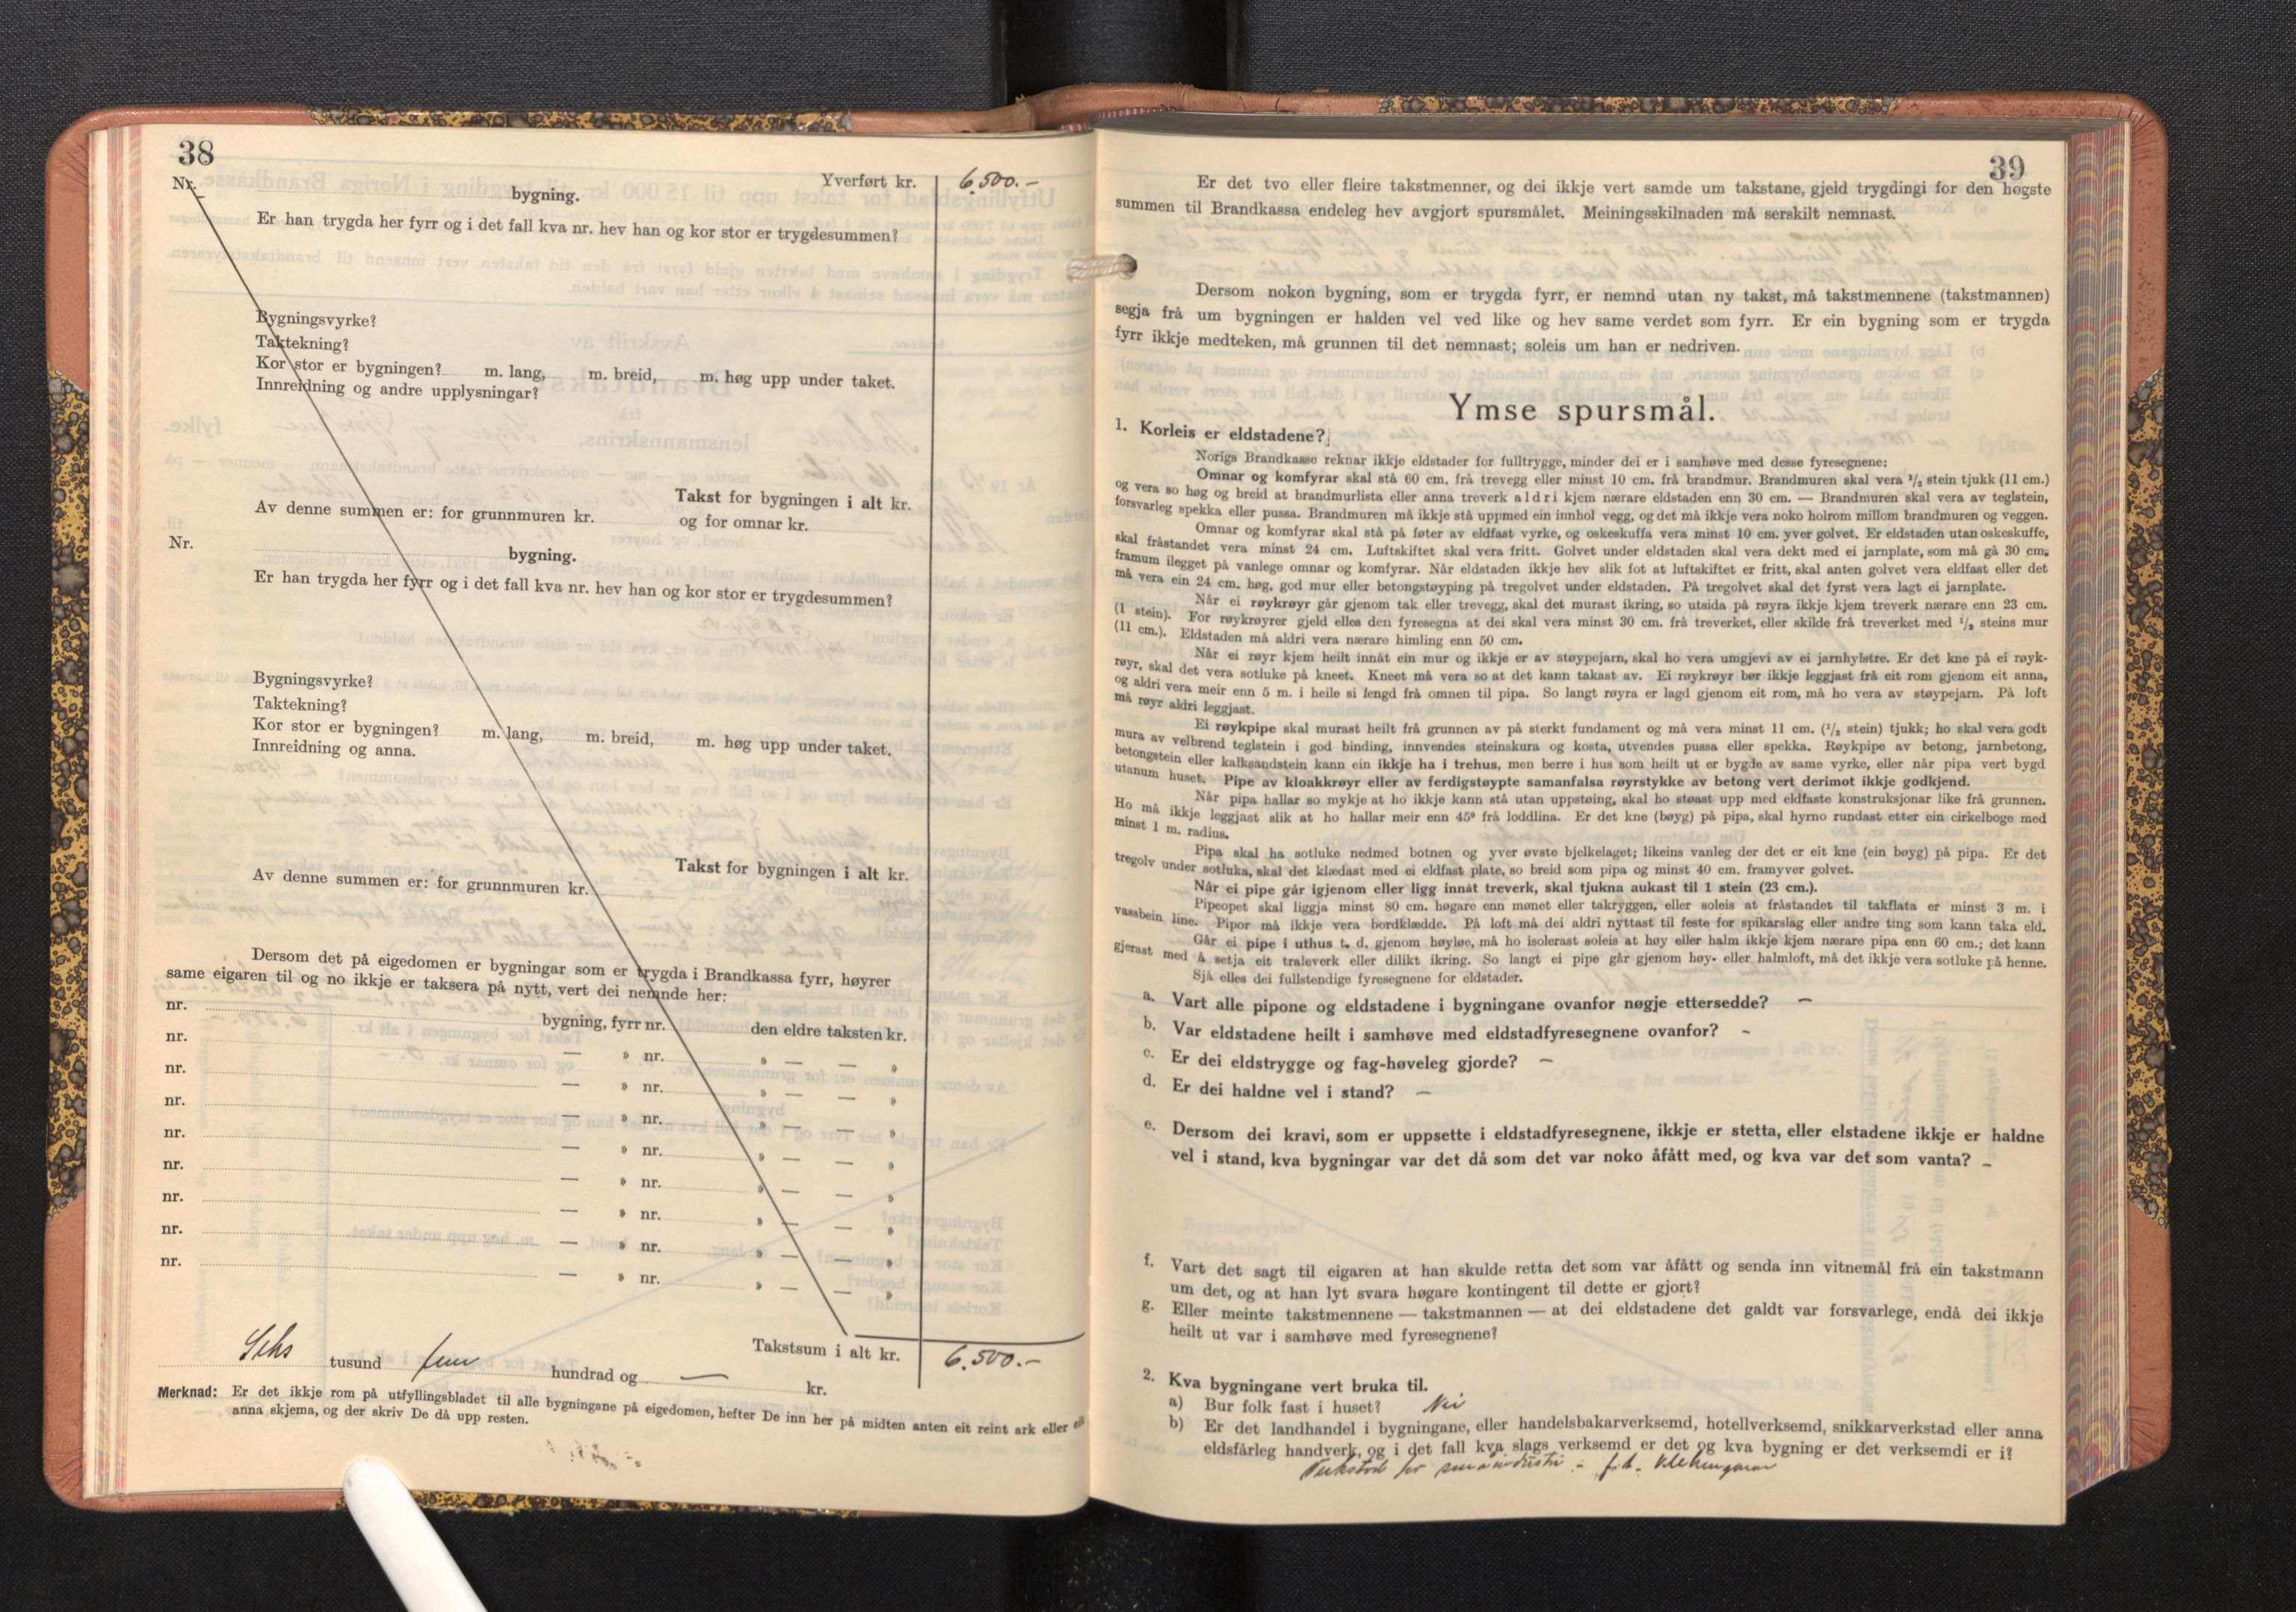 38
Nr. bygning.
Yverført kr. 6.500.-
Er han trygda her fyrr og i det fall kva nr. hev han og kor stor er trygdesummen?
Bygningsvyrke?
Taktekning?
Kor stor er bygningen? m. lang, m. breid, m. høg upp under taket.
Innreidning og andre upplysningar?
Takst for bygningen i alt kr.
Av denne summen er: for grunnmuren kr. og for omnar kr.
Nr. bygning.
Er han trygda her fyrr og i det fall kva nr. hev han og kor stor er trygdesummen?
Bygningsvyrke?
Taktekning?
Kor stor er bygningen? m. lang, m. breid, m. høg upp under taket.
Innreidning og anna.
Takst for bygningen i alt kr.
Av denne summen er: for grunnmuren kr.
Dersom det på eigedomen er bygningar som er trygda i Brandkassa fyrr, høyrer
same eigaren til og no ikkje er taksera på nytt, vert dei nemnde her:
nr. bygning, fyrr nr. den eldre taksten kr.
nr. — » nr. » — — »
nr. — » nr. » — — »
nr. — » nr. » — — »
nr. — » nr. » — — »
nr. — » nr. » — — »
nr. — » nr. » — — »
nr. — » nr. » — — »
nr. — » nr. » — — »
Takstsum i alt kr. 6.500.-
Seks tusund fem hundrad og — kr.
Merknad: Er det ikkje rom på utfyllingsbladet til alle bygningane på eigedomen, hefter De inn her på midten anten eit reint ark eller eit
anna skjema, og der skriv De då upp resten.
39
Er det tvo eller fleire takstmenner, og dei ikkje vert samde um takstane, gjeld trygdingi for den høgste
summen til Brandkassa endeleg hev avgjort spursmålet. Meiningsskilnaden må serskilt nemnast.
Dersom nokon bygning, som er trygda fyrr, er nemnd utan ny takst, må takstmennene (takstmannen)
segja frå um bygningen er halden vel ved like og hev same verdet som fyrr. Er ein bygning som er trygda
fyrr ikkje medteken, må grunnen til det nemnast; soleis um han er nedriven.
Ymse spursmål.
1. Korleis er eldstadene?
Norigs Brandkasse reknar ikkje eldstader for fulltrygge, minder dei er i samhøve med desse fyresegnene:
Omnar og komfyrar skal stå 60 cm. frå trevegg eller minst 10 cm. frå brandmur. Brandmuren skal vera ½ stein tjukk (11 cm.)
og vera so høg og breid at brandmurlista eller anna treverk aldri kjem nærare eldstaden enn 30 cm. — Brandmuren skal vera av teglstein,
forsvarleg spekka eller pussa. Brandmuren må ikkje stå uppmed ein innhol vegg, og det må ikkje vera noko holrom millom brandmuren og veggen.
Omnar og komfyrar skal stå på føter av eldfast vyrke, og oskeskuffa vera minst 10 cm. yver golvet. Er eldstaden utan oskeskuffe,
skal fråstandet vera minst 24 cm. Luftskiftet skal vera fritt. Golvet under eldstaden skal vera dekt med ei jarnplate, som må gå 30 cm.
framum ilegget på vanlege omnar og komfyrar. Når eldstaden ikkje hev slik fot at luftskiftet er fritt, skal anten golvet vera eldfast eller det
må vera ein 24 cm. høg, god mur eller betongstøyping på tregolvet under eldstaden. På tregolvet skal det fyrst vera lagt ei jarnplate.
Når ei røykrøyr går gjenom tak eller trevegg, skal det murast ikring, so utsida på røyra ikkje kjem treverk nærare enn 23 cm.
(1 stein). For røykrøyrer gjeld elles den fyresegna at dei skal vera minst 30 cm. frå treverket, eller skilde frå treverket med ½ steins mur
(11 cm.). Eldstaden må aldri vera nærare himling enn 50 cm.
Når ei røyr kjem heilt innåt ein mur og ikkje er av støypejarn, skal ho vera umgjevi av ei jarnhylstre. Er det kne på ei røyk-
røyr, skal det vera sotluke på kneet. Kneet må vera so at det kann takast av. Ei røykrøyr bør ikkje leggjast frå eit rom gjenom eit anna,
og aldri vera meir enn 5 m. i heile si lengd frå omnen til pipa. So langt røyra er lagd gjenom eit rom, må ho vera av støypejarn. På loft
må røyr aldri leggjast.
Ei røykpipe skal murast heilt frå grunnen av på sterkt fundament og må vera minst 11 cm. (½ stein) tjukk; ho skal vera godt
mura av velbrend teglstein i god binding, innvendes steinskura og kosta, utvendes pussa eller spekka. Røykpipe av betong, jarnbetong,
betongstein eller kalksandstein kann ein ikkje ha i trehus, men berre i hus som heilt ut er bygde av same vyrke, eller når pipa vert bygd
utanum huset. Pipe av kloakkrøyr eller av ferdigstøypte samanfalsa røyrstykke av betong vert derimot ikkje godkjend.
Når pipa hallar so mykje at ho ikkje kann stå utan uppstøing, skal ho støast upp med eldfaste konstruksjonar like frå grunnen.
Ho må ikkje leggjast slik at ho hallar meir enn 45° frå loddlina. Er det kne (bøyg) på pipa, skal hyrno rundast etter ein cirkelboge med
minst 1 m. radius.
Pipa skal ha sotluke nedmed botnen og yver øvste bjelkelaget; likeins vanleg der det er eit kne (ein bøyg) på pipa. Er det
tregolv under sotluka, skal det klædast med ei eldfast plate, so breid som pipa og minst 40 cm. framyver golvet.
Når ei pipe går igjenom eller ligg innåt treverk, skal tjukna aukast til 1 stein (23 cm.).
Pipeopet skal liggja minst 80 cm. høgare enn mønet eller takryggen, eller soleis at fråstandet til takflata er minst 3 m. i
vassbein line. Pipor må ikkje vera bordklædde. På loft må dei aldri nyttast til feste for spikarslag eller andre ting som kann taka eld.
Går ei pipe i uthus t. d. gjenom høyløe, må ho isolerast soleis at høy eller halm ikkje kjem nærare pipa enn 60 cm.; det kann
gjerast med å setja eit traleverk eller dilikt ikring. So langt ei pipe går gjenom høy- eller halmloft, må det ikkje vera sotluke på henne.
Sjå elles dei fullstendige fyresegnene for eldstader.
a. Vart alle pipone og eldstadene i bygningane ovanfor nøgje ettersedde? –
b. Var eldstadene heilt i samhøve med eldstadfyresegnene ovanfor? –
c. Er dei eldstrygge og fag-høveleg gjorde? –
d. Er dei haldne vel i stand? –
e. Dersom dei kravi, som er uppsette i eldstadfyresegnene, ikkje er stetta, eller elstadene ikkje er haldne
vel i stand, kva bygningar var det då som det var noko åfått med, og kva var det som vanta? –
f. Vart det sagt til eigaren at han skulde retta det som var åfått og senda inn vitnemål frå ein takstmann
um det, og at han lyt svara høgare kontingent til dette er gjort?
g. Eller meinte takstmennene — takstmannen — at dei eldstadene det galdt var forsvarlege, endå dei ikkje
heilt ut var i samhøve med fyresegnene?
2. Kva bygningane vert bruka til.
a) Bur folk fast i huset? Nei
b) Er det landhandel i bygningane, eller handelsbakarverksemd, hotellverksemd, snikkarverkstad eller anna
eldsfårleg handverk, og i det fall kva slags verksemd er det og kva bygning er det verksemdi er i?
Verkstad for småindustri -